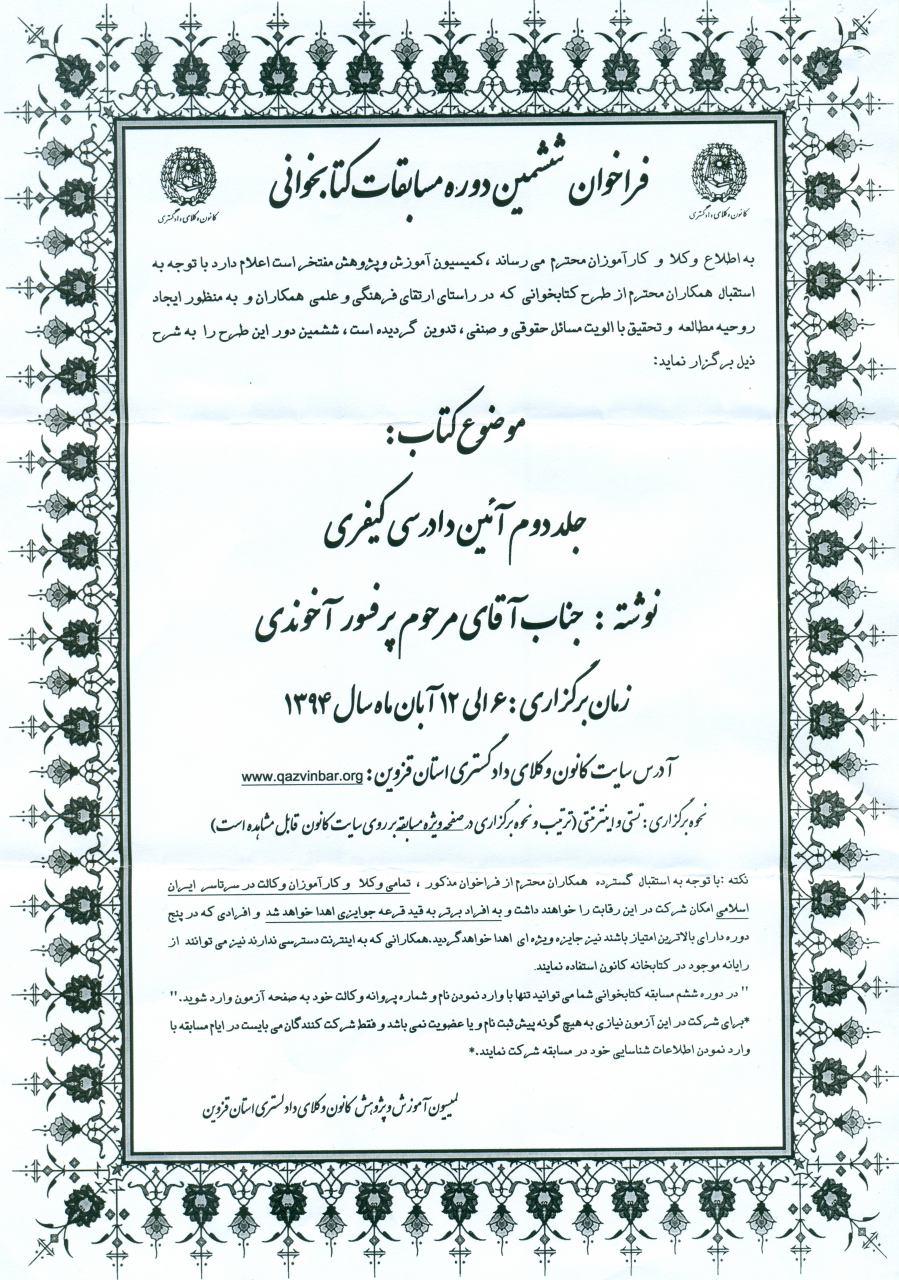 فراخوان ششمین دوره مسابقات کتابخوانی
کانون وکلای دادگستری
کانون وکلای دادگستری
به اطلاع وکلا و کارآموزان محترم می رساند ،کمیسیون آموزش و پژوهش مفتخر است اعلام دارد با توجه به
استقبال همکاران محترم از طرح کتابخوانی که در راستای ارتقای فرهنگی و علمی همکاران و به منظور ایجاد
روحیه مطالعه و تحقیق با الویت مسائل حقوقی و صنفی ، تدوین گردیده است ، ششمین دور این طرح را به شرح
ذیل برگزار نماید:
موضوع کتاب :
جلد دوم آئین دادرسی کیفری
نوشته : جناب آقای مرحوم پرفسور آخوندی
زمان برگزاری : ۶ الی ۱۲ آبان ماه سال ۱۳۹۴
آدرس سایت کانون وکلای دادگستری استان قزوین : www.qazvinbar.org
نحوه برگزاری : تستی و اینترنتی (ترتیب و نحوه برگزاری در صفحه ویژه مسابقه بر روی سایت کانون قابل مشاهده است)
نکته :با توجه به استقبال گسترده همکاران محترم از فراخوان مذکور ، تمامی وکلا و کارآموزان وکالت در سرتاسر ایران
اسلامی امکان شرکت در این رقابت را خواهند داشت و به افراد برتر به قید قرعه جوایزی اهدا خواهد شد و افرادی که در پنج
دوره دارای بالاترین امتیاز باشند نیز جایزه ویژه ای اهدا خواهد گردید.همکارانی که به اینترنت دسترسی ندارند نیز می توانند از
رایانه موجود در کتابخانه کانون استفاده نمایند.
" در دوره ششم مسابقه کتابخوانی شما می توانید تنها با وارد نمودن نام و شماره پروانه وکالت خود به صفحه آزمون وارد شوید."
*برای شرکت در این آزمون نیازی به هیچ گونه پیش ثبت نام و یا عضویت نمی باشد و فقط شرکت کنندگان می بایست در ایام مسابقه با
وارد نمودن اطلاعات شناسایی خود در مسابقه شرکت نمایند.*
کمیسیون آموزش و پژوهش کانون وکلای دادگستری استان قزوین